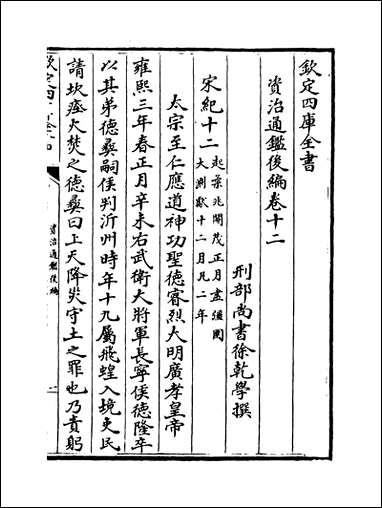 欽定四庫全書
資治通鑑後編卷十二
刑部尚書徐乾學撰
宋紀十二
起柔兆閹茂正月盡彊圉
大淵獻十二月凡二年
太宗至仁應道神功聖德睿烈大明廣孝皇帝
雍熙三年春正月辛未右武衛大將軍長寧侯德隆卒
以其弟德彝嗣侯判沂州時年十九屬飛蝗入境吏民
請坎瘞火焚之德彝曰上天降災守土之罪也乃責躬
欽定四庫全書
資治通鑑後編
一